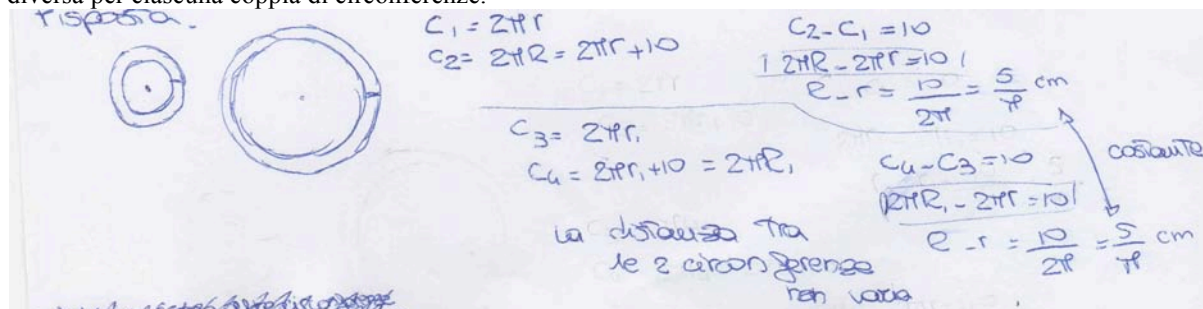 diversa per ciascuna coppia di circonferenze.
risposta.
C₁ = 2πr
C₂ = 2πR = 2πr + 10
C₂ - C₁ = 10
2πR - 2πr = 10
R - r = 10/2π = 5/π cm
C₃ = 2πr₁
C₄ = 2πr₁ + 10 = 2πR₁
C₄ - C₃ = 10
2πR₁ - 2πr = 10
R - r = 10/2π = 5/π cm
costante
la distanza tra
le 2 circonferenze
non varia